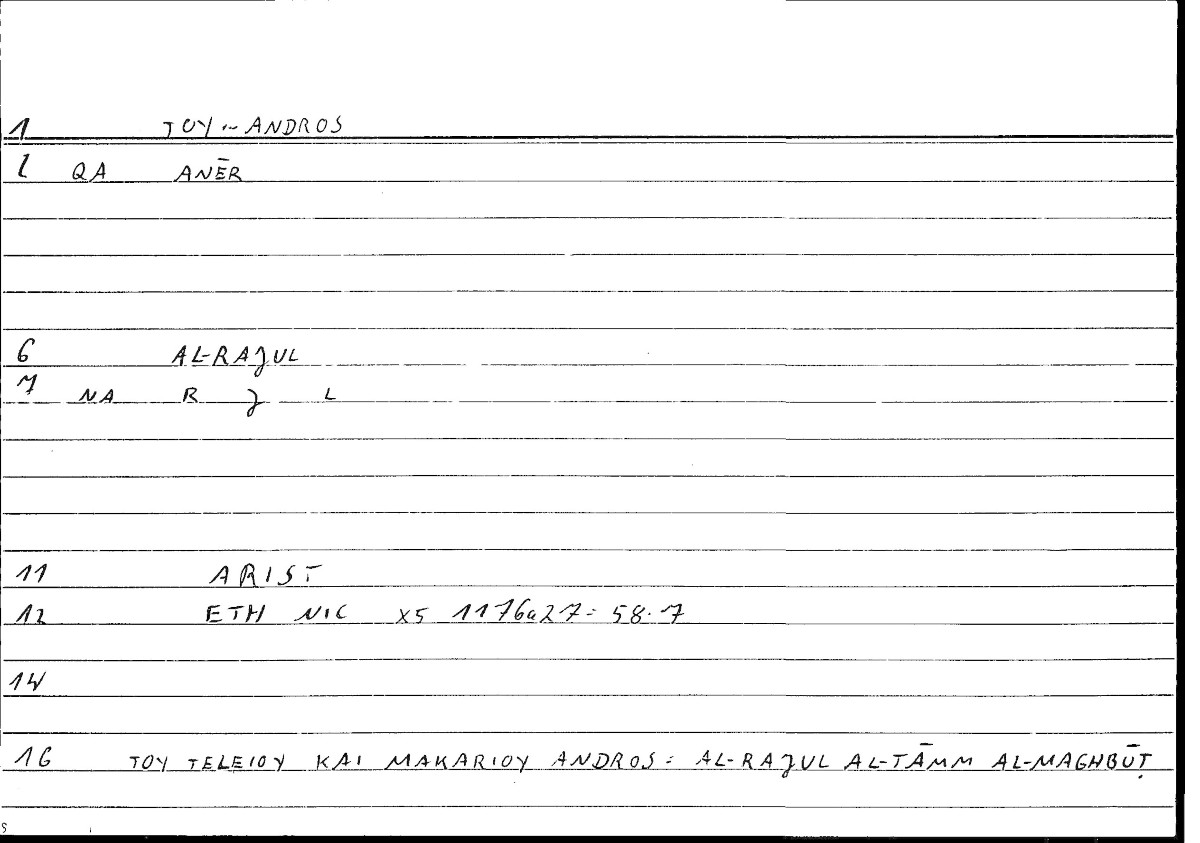 1 TOY .. ANDROS
2 QA ANĒR
6 AL-RAJUL
7 NA R J L
11 ARIST
12 ETH NIC X5 1176a27 = 58.7
14
16 TOY TELEIOY KAI MAKARIOY ANDROS = AL-RAJUL AL-TĀMM AL-MAGHBŪṬ